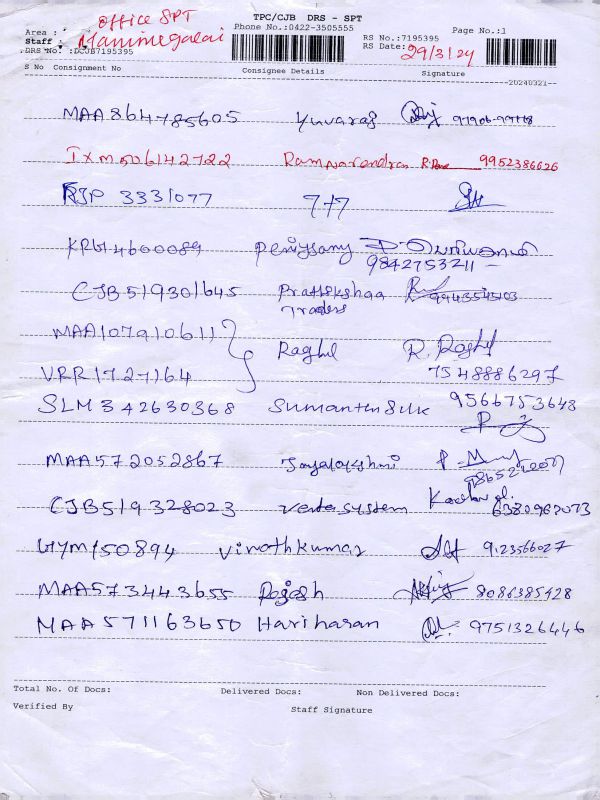 office SPT
TPC/CJB DRS - SPT
Phone No.:0422-3505555
Page No.:1
Area :
Staff : Manimegalai
DRS No :DCJB7195395
RS No.:7195395
RS Date: 29/3/24
S No Consignment No Consignee Details Signature
20240321
MAA864785605 Yuvaraj
IXM506142722 Ramnarendran 9952386626
3331077 7+7
KRG4600089 periysamy
9842753211
CJB519301645 Prathikshaa
Traders
MAA107910611
Raghul R. Raghul
VRR1727164 7548886297
SLM342630368 Sumanth Silk 9566753643
MAA572052867 Jayalakshmi
CJB519328023 system 6380967073
150894 Vinothkumar 9123566027
MAA573443655 Rajesh 8086385428
MAA571163650 Hariharan 9751326446
Total No. Of Docs: Delivered Docs: Non Delivered Docs:
Verified By Staff Signature